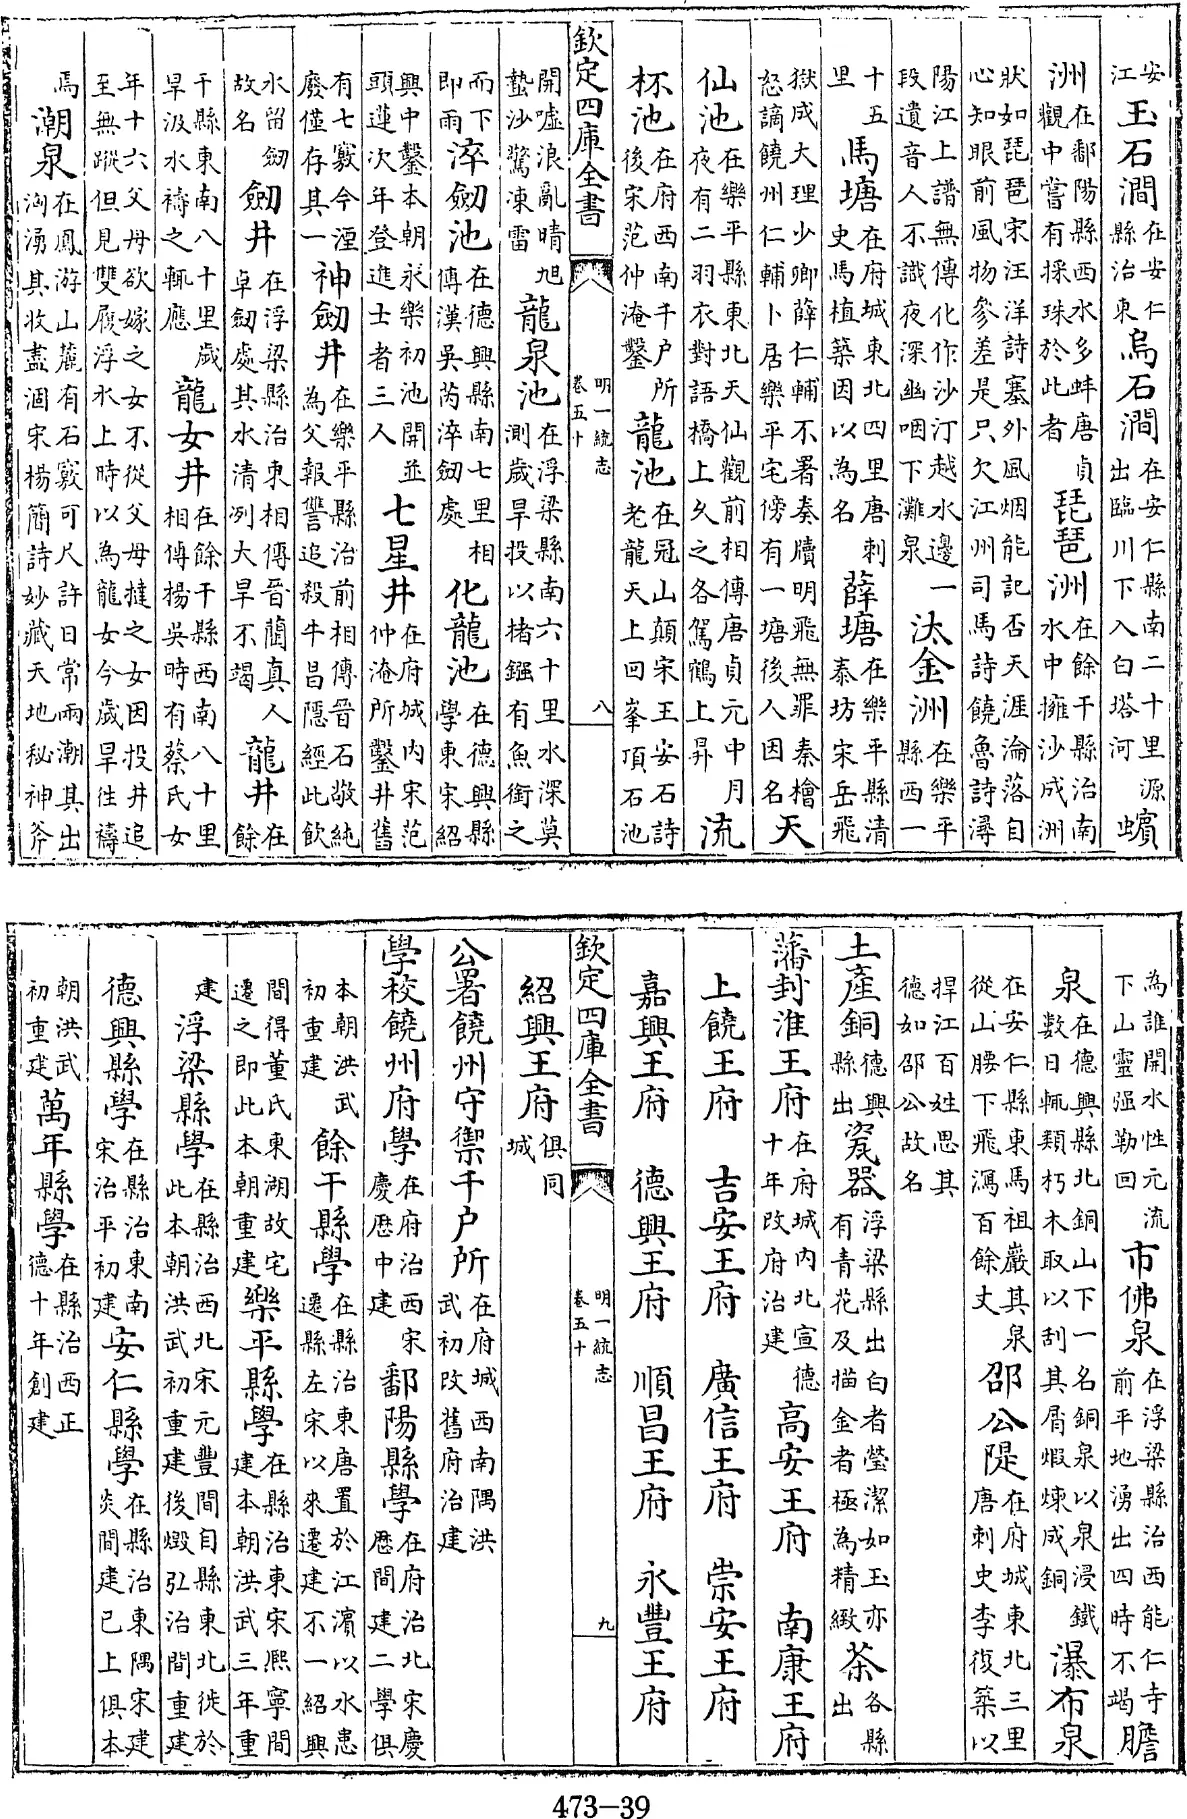 安江玉石澗在安仁縣治東烏石澗在安仁縣南二十里源出臨川下入白塔河蠙
洲在鄱陽縣西水多蚌唐貞觀中嘗有採珠於此者琵琶洲在餘干縣治南水中擁沙成洲
狀如琵琶宋汪洋詩塞外風烟能記否天涯淪落自心知眼前風物參差是只欠江州司馬詩饒魯詩潯
陽江上譜無傳化作沙汀越水邊一段遺音人不識夜深幽咽下灘泉汰金洲在樂平縣西一
十五里馬塘在府城東北四里唐刺史馬植築因以為名薛塘在樂平縣清泰坊宋岳飛
獄成大理少卿薛仁輔不署奏牘明飛無罪秦檜怒謫饒州仁輔卜居樂平宅傍有一塘後人因名天
仙池在樂平縣東北天仙觀前相傳唐貞元中月夜有二羽衣對語橋上久之各駕鶴上昇流
杯池在府西南千户所後宋范仲淹鑿龍池在冠山顛宋王安石詩老龍天上回峯頂石池
欽定四庫全書 明一統志 卷五十 八
開噓浪亂晴旭蟄沙驚凍雷龍泉池在浮梁縣南六十里水深莫測歲旱投以楮鏹有魚銜之
而下即雨淬劒池在德興縣南七里相傳漢吳芮淬劒處化龍池在德興縣學東宋紹
興中鑿本朝永樂初池開並頭蓮次年登進士者三人七星井在府城内宋范仲淹所鑿井舊
有七竅今湮廢僅存其一神劒井在樂平縣治前相傳晉石敬純為父報讐追殺牛昌隱經此飲
水留劒故名劒井在浮梁縣治東相傳晉蘭真人卓劒處其水清冽大旱不竭龍井在餘
干縣東南八十里歲旱汲水禱之輒應龍女井在餘干縣西南八十里相傳楊吳時有蔡氏女
年十六父母欲嫁之女不從父母撻之女因投井追至無蹤但見雙履浮水上時以為龍女今歲旱往禱
焉潮泉在鳳游山麓有石竅可尺許日常兩潮其出洶湧其收盡涸宋楊簡詩妙藏天地秘神斧
為誰開水性元流下山靈强勒回市佛泉在浮梁縣治西能仁寺前平地湧出四時不竭膽
泉在德興縣北銅山下一名銅泉以泉浸鐵數日輒類朽木取以刮其屑煅煉成銅瀑布泉
在安仁縣東馬祖巖其泉從山腰下飛瀉百餘丈邵公隄在府城東北三里唐刺史李復築以
捍江百姓思其德如邵公故名
土產銅德興縣出瓷器浮梁縣出白者瑩潔如玉亦有青花及描金者極為精緻茶各縣出
藩封淮王府在府城内北宣德十年改府治建高安王府 南康王府
上饒王府 吉安王府 廣信王府 崇安王府
嘉興王府 德興王府 順昌王府 永豐王府
欽定四庫全書 明一統志 卷五十 九
紹興王府俱同城
公署饒州守禦千户所在府城西南隅洪武初改舊府治建
學校饒州府學在府治西宋慶厯中建鄱陽縣學在府治北宋慶厯間建二學俱
本朝洪武初重建餘干縣學在縣治東唐置於江濵以水患遷縣左宋以來遷建不一紹興
間得董氏東湖故宅遷之即此本朝重建樂平縣學在縣治東宋熙寧間建本朝洪武三年重
建浮梁縣學在縣治西北宋元豐間自縣東北徙於此本朝洪武初重建後燬弘治間重建
德興縣學在縣治東南宋治平初建安仁縣學在縣治東隅宋建炎間建已上俱本
朝洪武初重建萬年縣學在縣治西正德十年創建
473-39